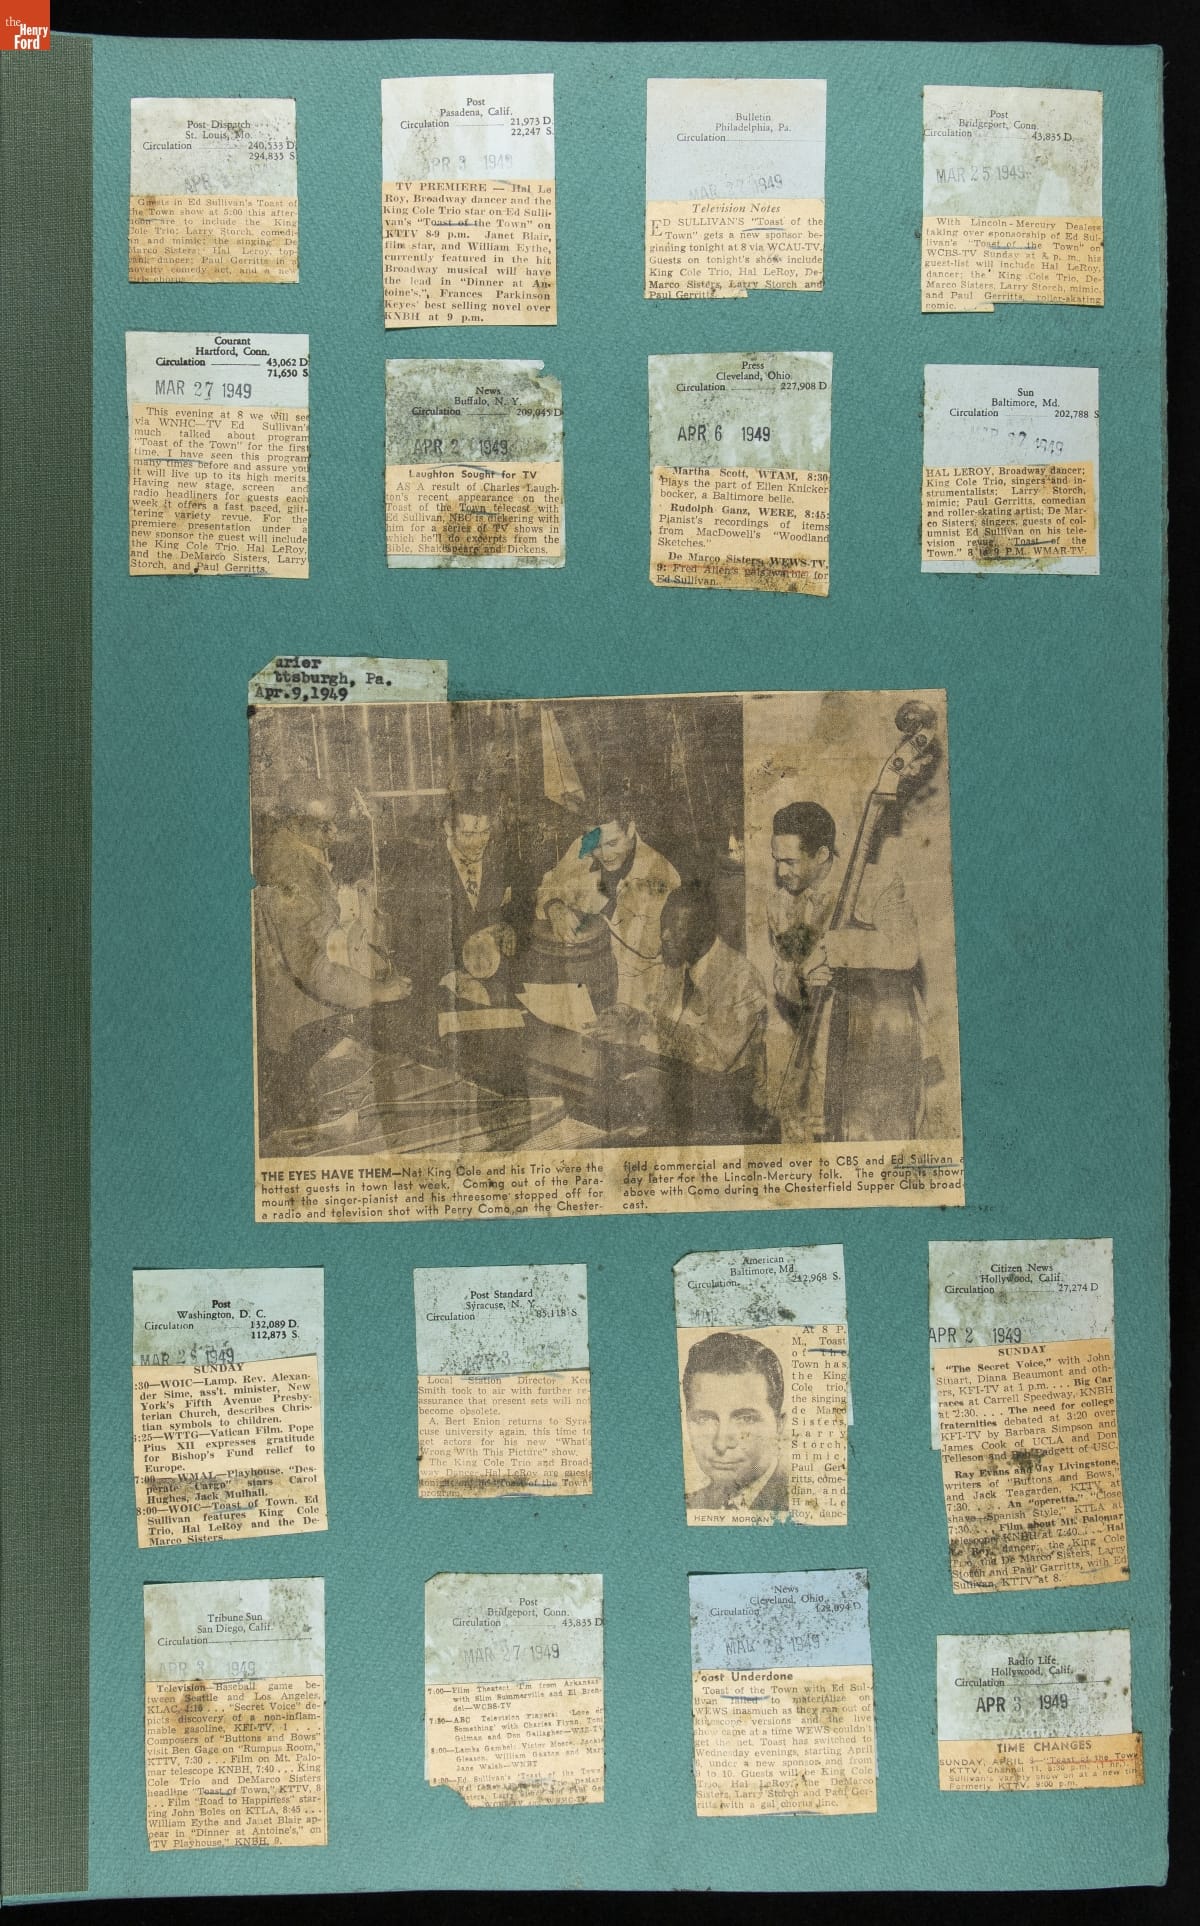 the
Henry
Ford
Post Dispatch
St. Louis, Mo.
Circulation 240,533 D.
294,835 S.
APR 3
Guests in Ed Sullivan's Toast of
the Town show at 5:00 this after-
noon are to include the King
Cole Trio; Larry Storch, comedi-
an and mimic; the singing De
Marco Sisters; Hal Leroy, top-
rank dancer; Paul Gerritts in a
novelty comedy act, and a new
girls chorus.
Post
Pasadena, Calif.
Circulation 21,973 D.
22,247 S.
APR 3 1949
TV PREMIERE — Hal Le
Roy, Broadway dancer and the
King Cole Trio star on Ed Sulli-
van's "Toast of the Town" on
KTTV 8-9 p.m. Janet Blair,
film star, and William Eythe,
currently featured in the hit
Broadway musical will have
the lead in "Dinner at An-
toine's," Frances Parkinson
Keyes' best selling novel over
KNBH at 9 p.m.
Bulletin
Philadelphia, Pa.
Circulation
MAR 27 1949
Television Notes
ED SULLIVAN'S "Toast of the
Town" gets a new sponsor be-
ginning tonight at 8 via WCAU-TV.
Guests on tonight's show include
King Cole Trio, Hal LeRoy, De-
Marco Sisters, Larry Storch and
Paul Gerritts.
Post
Bridgeport, Conn.
Circulation 43,835 D.
MAR 25 1949
With Lincoln-Mercury Dealers
taking over sponsorship of Ed Sul-
livan's "Toast of the Town" on
WCBS-TV Sunday at 8 p. m., his
guest-list will include Hal LeRoy,
dancer; the King Cole Trio, De-
Marco Sisters, Larry Storch, mimic,
and Paul Gerritts, roller-skating
comic.
Courant
Hartford, Conn.
Circulation 43,062 D
71,650 S
MAR 27 1949
This evening at 8 we will see
via WNHC—TV Ed Sullivan's
much talked about program
"Toast of the Town" for the first
time. I have seen this program
many times before and assure you
it will live up to its high merits.
Having new stage, screen and
radio headliners for guests each
week it offers a fast paced, glit-
tering variety revue. For the
premiere presentation under a
new sponsor the guest will include
the King Cole Trio, Hal LeRoy,
and the DeMarco Sisters, Larry
Storch, and Paul Gerritts.
News
Buffalo, N. Y.
Circulation 209,045 D
APR 2 1949
Laughton Sought for TV
AS A result of Charles Laugh-
ton's recent appearance on the
Toast of the Town telecast with
Ed Sullivan, NBC is dickering with
him for a series of TV shows in
which he'll do excerpts from the
Bible, Shakespeare and Dickens.
Press
Cleveland, Ohio
Circulation 227,908 D
APR 6 1949
Martha Scott, WTAM, 8:30
Plays the part of Ellen Knicker-
bocker, a Baltimore belle.
Rudolph Ganz, WERE, 8:45:
Pianist's recordings of items
from MacDowell's "Woodland
Sketches."
De Marco Sisters, WEWS-TV,
9: Fred Allen's gals warble for
Ed Sullivan.
Sun
Baltimore, Md.
Circulation 202,788 S
MAR 27 1949
HAL LEROY, Broadway dancer;
King Cole Trio, singers and in-
strumentalists; Larry Storch,
mimic; Paul Gerritts, comedian
and roller-skating artist; De Mar-
co Sisters, singers, guests of col-
umnist Ed Sullivan on his tele-
vision revue, "Toast of the
Town." 8 to 9 P.M. WMAR-TV.
urier
ttsburgh, Pa.
Apr.9,1949
THE EYES HAVE THEM—Nat King Cole and his Trio were the
hottest guests in town last week. Coming out of the Para-
mount the singer-pianist and his threesome stopped off for
a radio and television shot with Perry Como on the Chester-
field commercial and moved over to CBS and Ed Sullivan a
day later for the Lincoln-Mercury folk. The group is shown
above with Como during the Chesterfield Supper Club broad-
cast.
Post
Washington, D. C.
Circulation 132,089 D.
112,873 S.
MAR 1949
SUNDAY
:30—WOIC—Lamp. Rev. Alexan-
der Sime, ass't. minister, New
York's Fifth Avenue Presby-
terian Church, describes Chris-
tian symbols to children.
:25—WTTG—Vatican Film. Pope
Pius XII expresses gratitude
for Bishop's Fund relief to
Europe.
7:00—WMAL—Playhouse. "Des-
perate Cargo" stars Carol
Hughes, Jack Mulhall.
8:00—WOIC—Toast of Town. Ed
Sullivan features King Cole
Trio, Hal LeRoy and the De-
Marco Sisters.
Post Standard
Syracuse, N. Y.
Circulation 85,118 S
APR 3
Local Station Director Ken
Smith took to air with further re-
assurance that present sets will not
become obsolete.
A. Bert Enion returns to Syra-
cuse university again, this time to
get actors for his new "What's
Wrong With This Picture" show.
The King Cole Trio and Broad-
way Dancer Hal LeRoy are guests
tonight on the "Toast of the Town"
program.
American
Baltimore, Md.
Circulation 212,968 S.
MAR 27 1949
At 8 P.
M., Toast
of the
Town has
the King
Cole trio,
the singing
de Marco
Sisters,
Larry
Storch,
mimic,
Paul Ger-
ritts, come-
dian, and
Hal Le
Roy, danc-
HENRY MORGAN
Citizen News
Hollywood, Calif.
Circulation 27,274 D
APR 2 1949
SUNDAY
"The Secret Voice," with John
Stuart, Diana Beaumont and oth-
ers, KFI-TV at 1 p.m. . . . Big Car
races at Carrell Speedway, KNBH
at 2:30. . . . The need for college
fraternities debated at 3:20 over
KFI-TV by Barbara Simpson and
James Cook of UCLA and Don
Telleson and Bob Padgett of USC.
Ray Evans and Jay Livingstone,
writers of "Buttons and Bows,"
and Jack Teagarden, KTTV at
7:30. . . . An "operetta," "Close
shave, Spanish Style," KTLA at
7:30. . . . Film about Mt. Palomar
telescope, KNBH at 7:40. . . . Hal
Le Roy, dancer, the King Cole
Trio, the De Marco Sisters, Larry
Storch and Paul Garritts, with Ed
Sullivan, KTTV at 8.
Tribune Sun
San Diego, Calif.
Circulation
APR 2 1949
Television—Baseball game be-
tween Seattle and Los Angeles,
KLAC, 1:15 . . . "Secret Voice" de-
picts discovery of a non-inflam-
mable gasoline, KFI-TV, 1 . . .
Composers of "Buttons and Bows"
visit Ben Gage on "Rumpus Room,"
KTTV, 7:30 . . . Film on Mt. Palo-
mar telescope KNBH, 7:40 . . . King
Cole Trio and DeMarco Sisters
headline "Toast of Town," KTTV, 8
. . . Film "Road to Happiness" star-
ring John Boles on KTLA, 8:45 . . .
William Eythe and Janet Blair ap-
pear in "Dinner at Antoine's," on
"TV Playhouse," KNBH, 9.
Post
Bridgeport, Conn.
Circulation 43,835 D
MAR 27 1949
7:00—Film Theater: I'm from Arkansas
with Slim Summerville and El Bren-
del—WCBS-TV
7:30—ABC Television Players: 'Love or
Something' with Charles Flynn, Toni
Gilman and Don Gallagher—WJZ-TV
8:00—Lambs Gambol: Victor Moore, Jackie
Gleason, William Gaxton and Mary
Jane Walsh—WNBT
8:00—Ed Sullivan's 'Toast of the Town'
News
Cleveland, Ohio
Circulation 122,094 D.
MAR 28 1949
Toast Underdone
Toast of the Town with Ed Sul-
livan failed to materialize on
WEWS inasmuch as they ran out of
kinescope versions and the live
show came at a time WEWS couldn't
get the net. Toast has switched to
Wednesday evenings, starting April
6, under a new sponsor and from
9 to 10. Guests will be King Cole
Trio, Hal LeRoy, the DeMarco
Sisters, Larry Storch and Paul Ger-
ritts with a gal chorus line.
Radio Life
Hollywood, Calif.
Circulation
APR 3 1949
TIME CHANGES
SUNDAY, APRIL 3—"Toast of the Town,"
KTTV, Channel 11, 8:30 p.m. (1 hr.)
Sullivan's variety show on at a new time.
Formerly KTTV, 9:00 p.m.